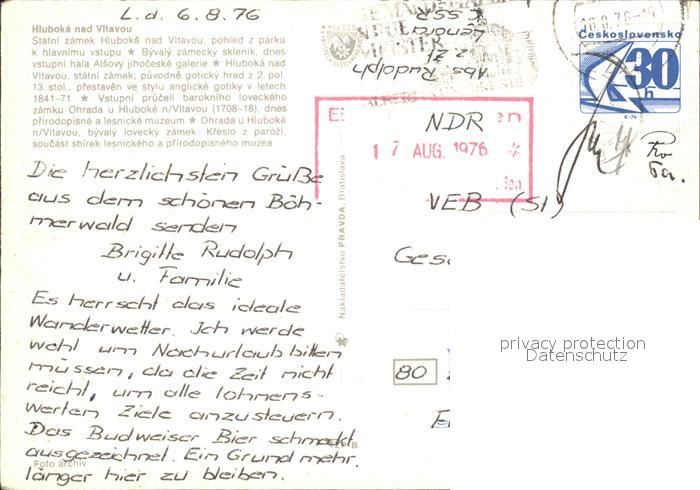 L.d. 6.8.76
Hluboká nad Vltavou
Státní zámek Hluboká nad Vltavou, pohled z parku
k hlavnímu vstupu ★ Bývalý zámecký skleník, dnes
vstupní hala Alšovy jihočeské galerie ★ Hluboká nad
Vltavou, státní zámek; původně gotický hrad z 2. pol.
13. stol., přestavěn ve stylu anglické gotiky v letech
1841–71 ★ Vstupní průčelí barokního loveckého
zámku Ohrada u Hluboké n/Vltavou (1708–18), dnes
přírodopisné a lesnické muzeum ★ Ohrada u Hluboké
n/Vltavou, bývalý lovecký zámek. Křeslo z paroží,
součást sbírek lesnického a přírodopisného muzea
Die herzlichsten Grüße
aus dem schönen Böh-
merwald senden
Brigitte Rudolph
u. Familie
Es herrscht das ideale
Wanderwetter. Ich werde
wohl um Nachurlaub bitten
müssen, da die Zeit nicht
reicht, um alle lohnens-
werten Ziele anzusteuern.
Das Budweiser Bier schmeckt
ausgezeichnet. Ein Grund mehr,
länger hier zu bleiben.
Foto archív
Nakladatelstvo PRAVDA, Bratislava
Abs. Rudolph
Lenora
ČSSR
Československo
30
h
17 AUG. 1976
NDR
VEB (St)
80
privacy protection
Datenschutz